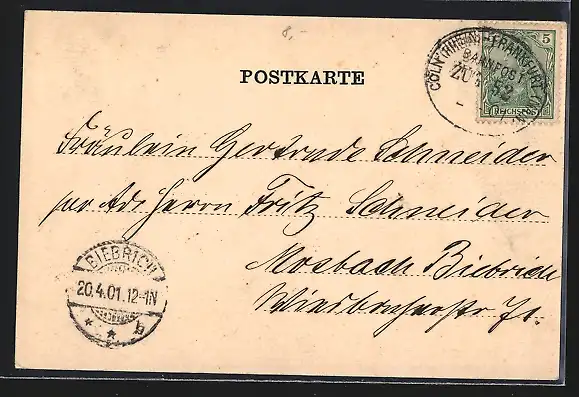 8,-
POSTKARTE
CÖLN (RHEIN)-FRANKFURT
BAHNPOST
ZUG 52
5
REICHSPOST
Fräulein Gertrude Schneider
per Adr Herrn Fritz Schneider
Mosbach Biebrich
BIEBRICH
20.4.01.12-1N
* * b